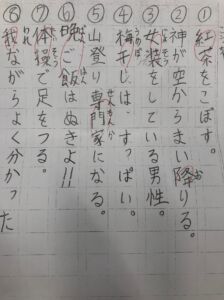 ①紅茶をこぼす。
②神が空からまい降りる。
③女装をしている男性。
④梅干しは、すっぱい。
⑤山登り専門家になる。
⑥晩ご飯はぬきよ!!
⑦体操で足をつる。
⑧我ながらよく分かった